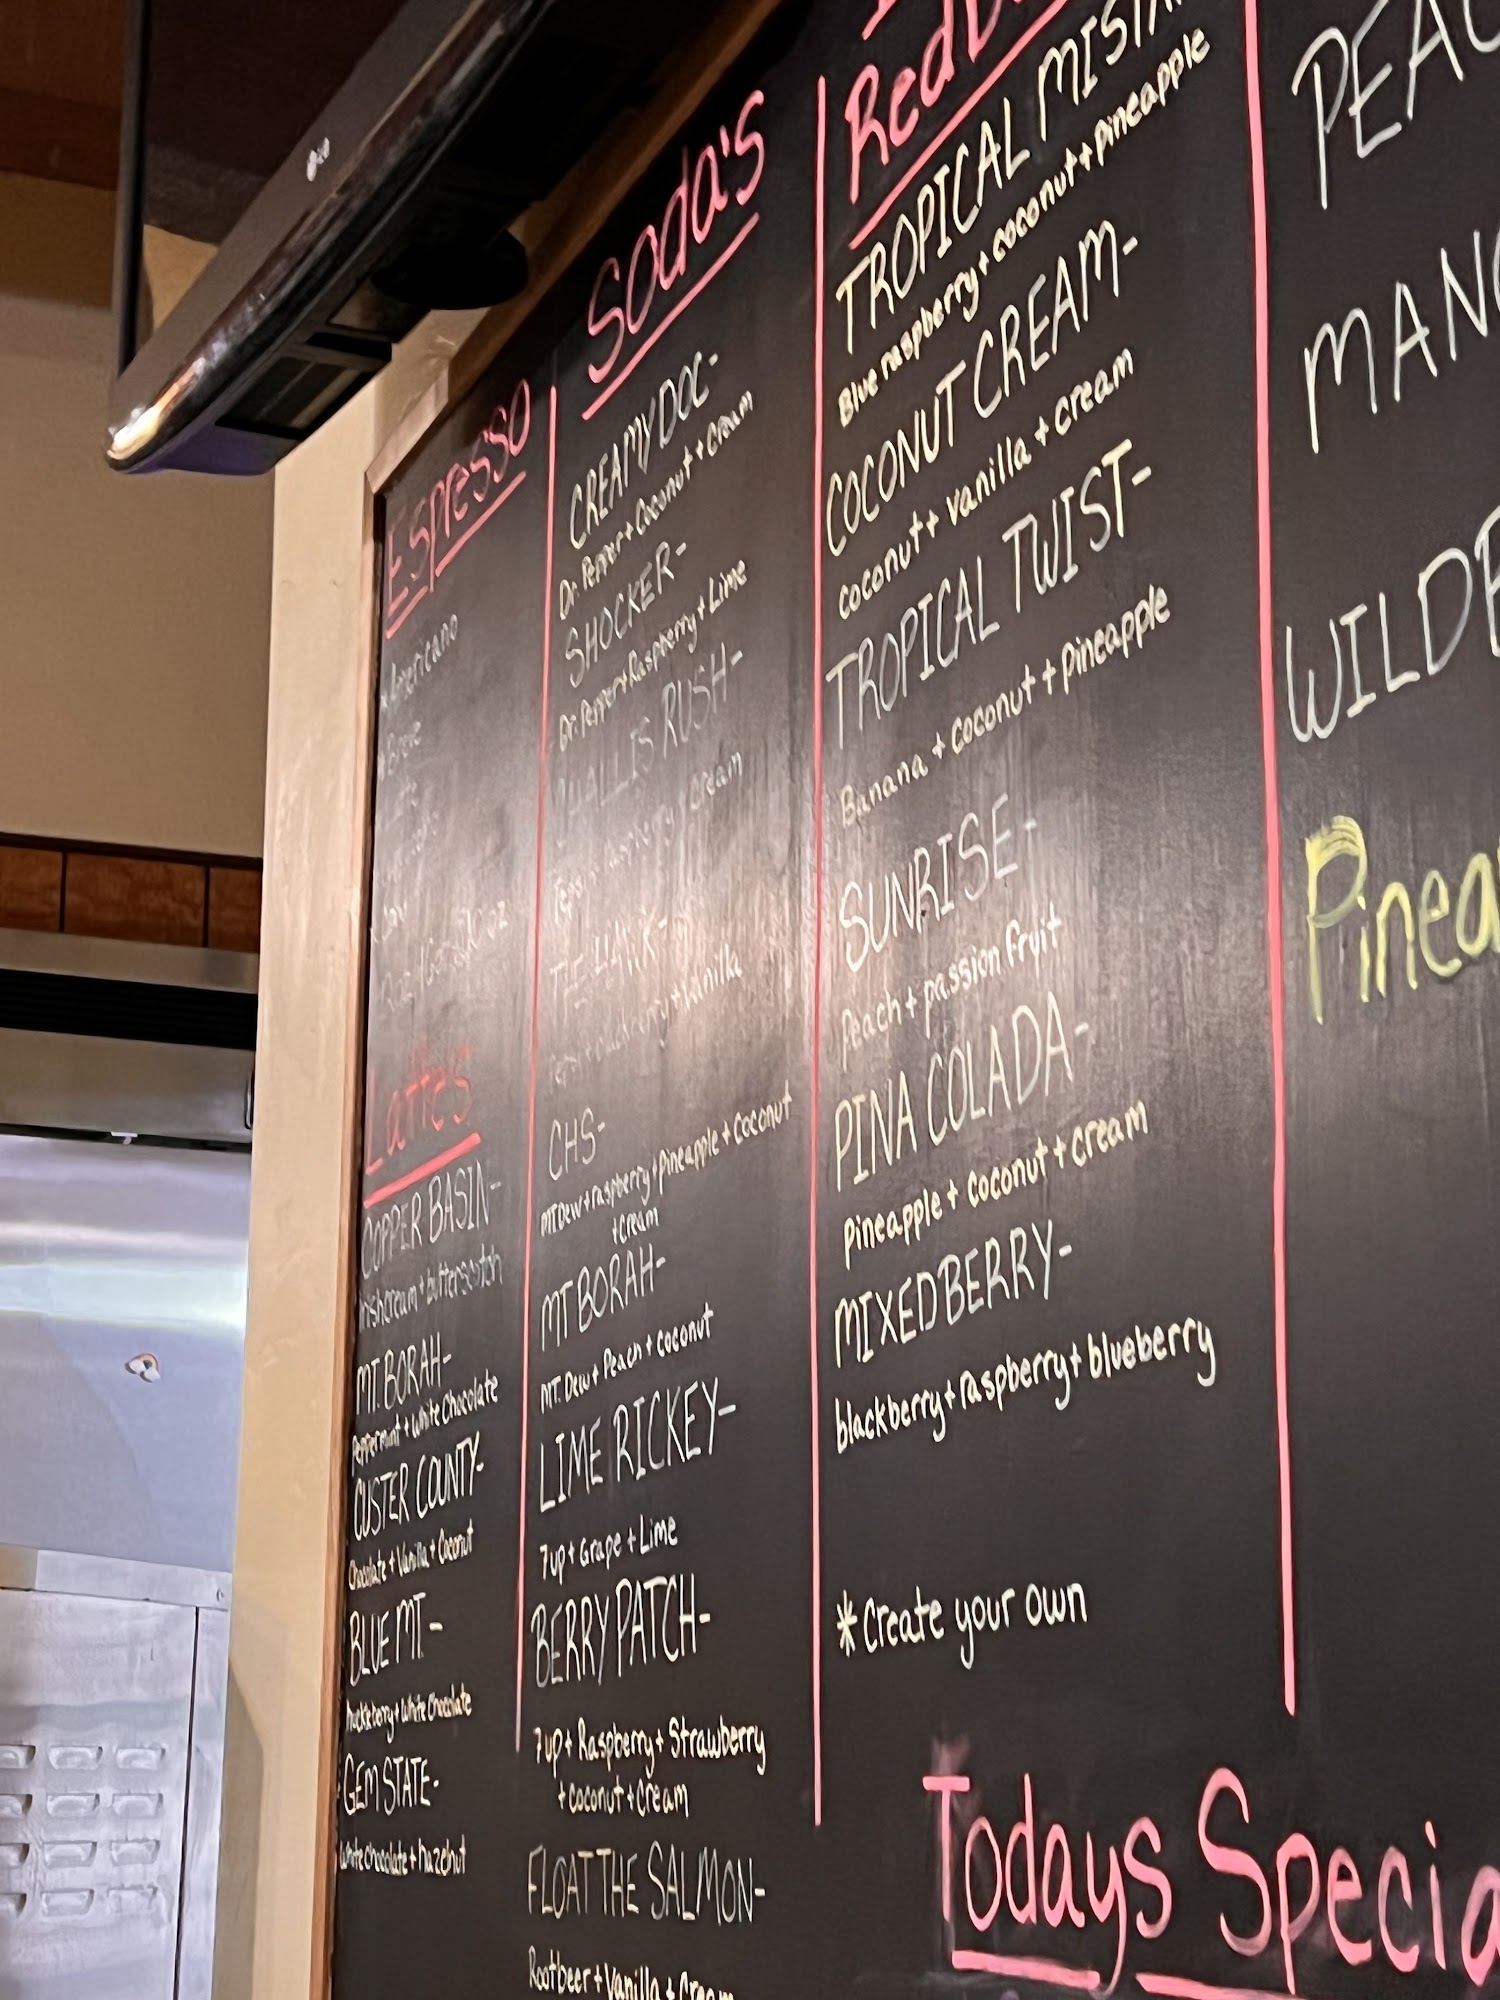 Espresso
Americano
Breve
Lattes
COPPER BASIN-
Irishcream + butterscotch
MT. BORAH-
Peppermint + White Chocolate
CUSTER COUNTY-
Chocolate + Vanilla + Coconut
BLUE MT.-
huckleberry + White Chocolate
GEM STATE-
White chocolate + hazelnut
Soda's
CREAMY DOC-
Dr. Pepper + Coconut + Cream
SHOCKER-
Dr. Pepper + Raspberry + Lime
RUSH-
Cream
vanilla
CHS-
MT Dew + raspberry + Pineapple + Coconut
+ Cream
MT BORAH-
MT. Dew + Peach + Coconut
LIME RICKEY-
7up + Grape + Lime
BERRY PATCH-
7up + Raspberry + Strawberry
+ Coconut + Cream
FLOAT THE SALMON-
Rootbeer + Vanilla + Cream
TROPICAL
Blue raspberry + coconut + pineapple
COCONUT CREAM-
coconut + vanilla + cream
TROPICAL TWIST-
Banana + coconut + pineapple
SUNRISE-
Peach + passion fruit
PINA COLADA-
Pineapple + coconut + cream
MIXED BERRY-
blackberry + raspberry + blueberry
*Create your own
Todays